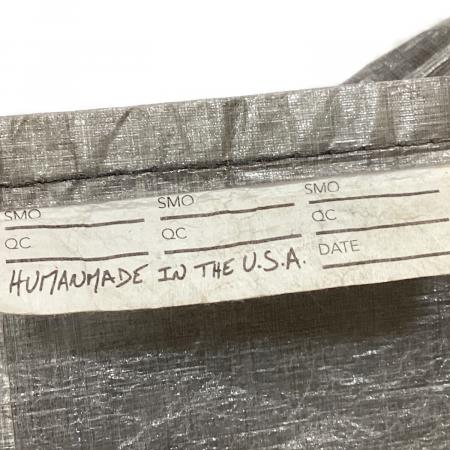 SMO SMO SMO
QC QC QC
HUMANMADE IN THE U.S.A. DATE